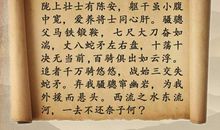 陇上壮士有陈安，躯干虽小腹
中宽，爱养将士同心肝。骣骢
父马铁锻鞍，七尺大刀奋如
湍，丈八蛇矛左右盘，十荡十
决无当前，百骑俱出如云浮。
追者千万骑悠悠，战始三交失
蛇矛。弃我骣骢窜幽岩，为我
外援而悬头。西流之水东流
河，一去不还奈子何？